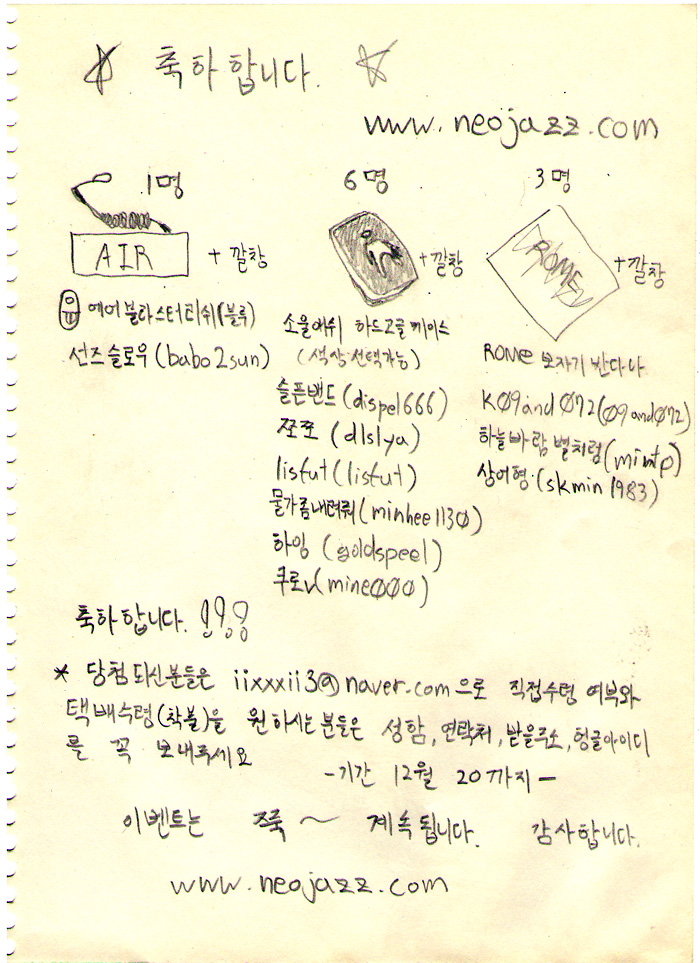 축하합니다.
www.neojazz.com
1명
6명
3명
AIR
+ 깔창
+ 깔창
ROME
+ 깔창
에어 블라스터 리쉬(블루)
선즈 슬로우 (babo2sun)
소울에쉬 하드고글케이스
(색상선택가능)
슬픈밴드 (dispel666)
쪼쪼 (dlslya)
lisfut (lisfut)
물가좀내려줘 (minhee1130)
하잉 (goldspeel)
쿠로v (mine000)
ROME 보자기 반다나
K09and072 (09and072)
하늘바람별처럼 (mintp)
상어형 (skmin1983)
축하합니다. !!!
* 당첨되신분들은 iixxxii3@naver.com으로 직접수령 여부와
택배수령(착불)을 원하시는 분들은 성함, 연락처, 받을주소, 헝글아이디
를 꼭 보내주세요
-기간 12월 20까지-
이벤트는 쭈욱 ~ 계속됩니다. 감사합니다.
www.neojazz.com